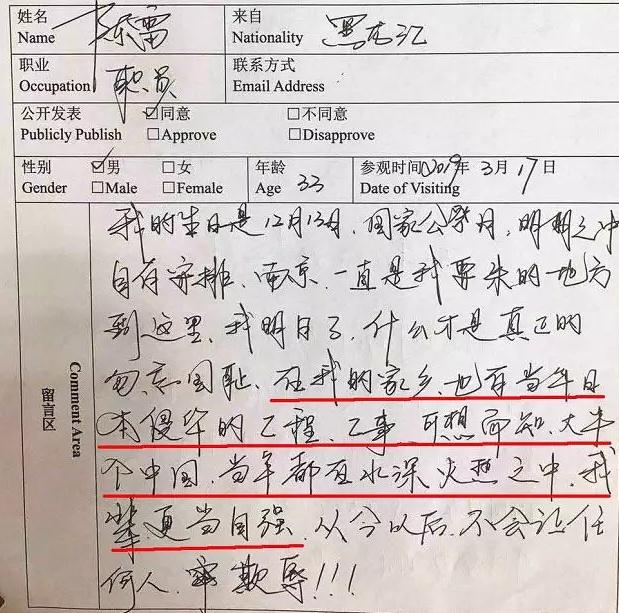 姓名 陈雷 来自
Name Nationality 黑龙江
职业 职员 联系方式
Occupation Email Address
公开发表 ☑同意 □不同意
Publicly Publish □Approve □Disapprove
性别 ☑男 □女 年龄 参观时间 2019年 3月 17日
Gender □Male □Female Age 33 Date of Visiting
留言区
Comment Area
我的生日是12月13日、国家公祭日、明明之中
自有安排、南京、一直是我要来的地方
到这里、我明白了、什么才是真正的
勿忘国耻、在我的家乡、也有当年日
本侵华的工程、工事、可想而知、大半
个中国、当年都在水深火热之中、我
辈、更当自强、从今以后、不会让任
何人、欺辱!!!